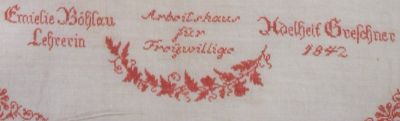 Emielie Böhlau
Lehrerin
Arbeitshaus
für
Freywillige
Adelheit Greschner
1842